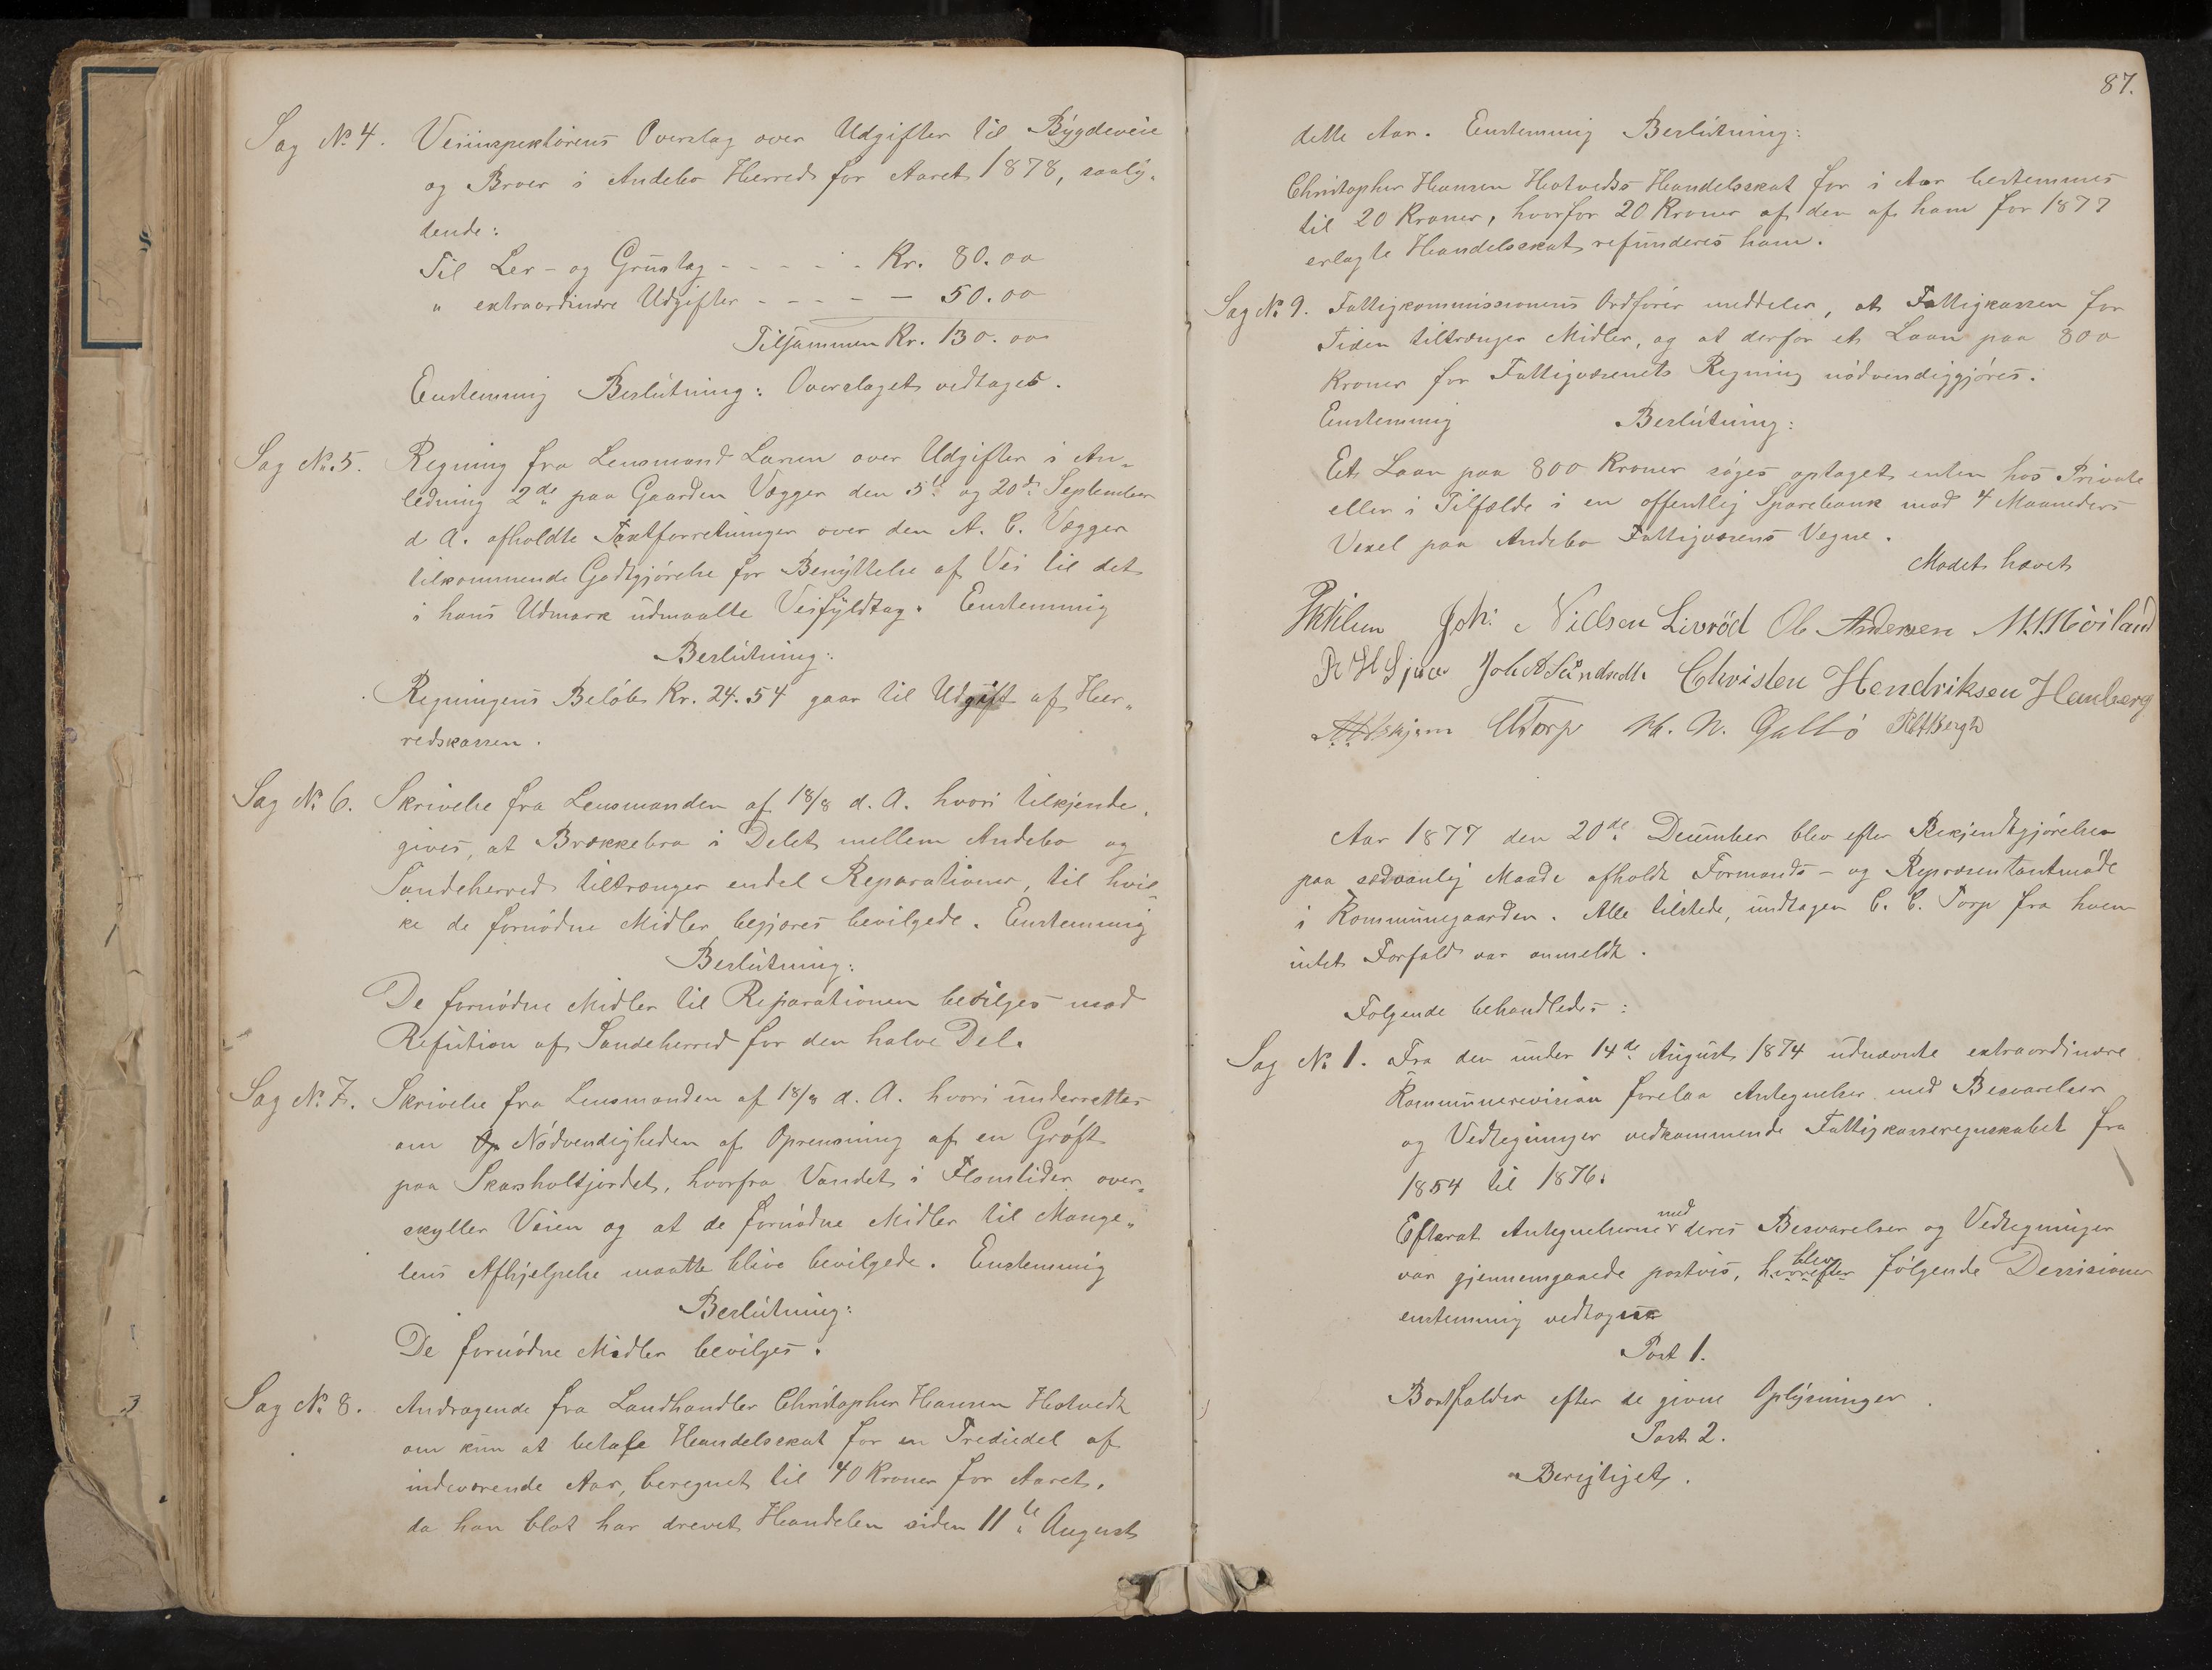 Sag No 4. Veiinspektørens Overslag over Udgifter til Bygdeveie
og Broer i Andebo Herred for Aaret 1878, saaly-
dende:
Til Ler- og Grustag - - - - - Kr. 80.00
" extraordinære Udgifter - - - - - 50.00
Tilsammen Kr. 130.00
Enstemmig Beslutning: Overslaget vedtages.
Sag No 5. Regning fra Lensmand Larsen over Udgifter i An-
ledning 2de paa Gaarden Vegger den 5te og 20de September
d. A. afholdte Taxtforretninger over den A. C. Vegger
tilkommende Godtgjørelse for Benyttelse af Vei til det
i hans Udmark udmaalte Veifyldtag. Enstemmig
Beslutning:
Regningens Beløb Kr. 24.54 gaar til Udgift af Her-
redskassen.
Sag No 6. Skrivelse fra Lensmanden af 18/8 d. A. hvori tilkjende-
gives, at Brækkebro i Delet mellem Andebo og
Sandeherred tiltrænger endel Reparationer, til hvil-
ke de fornødne Midler begjæres bevilgede. Enstemmig
Beslutning:
De fornødne Midler til Reparationen bevilges mod
Refution af Sandeherred for den halve Del.
Sag No 7. Skrivelse fra Lensmanden af 18/8 d. A. hvori underrettes
om Op Nødvendigheden af Oprensning af en Grøft
paa Skarsholtjordet, hvorfra Vandet i Flomtider over-
skyller Veien og at de fornødne Midler til Mange-
lens Afhjelpelse maatte blive bevilgede. Enstemmig
Beslutning:
De fornødne Midler bevilges.
Sag No 8. Andragende fra Landhandler Christopher Hansen Hotvedt
om kun at betale Handelsskat for en Trediedel af
indeværende Aar, beregnet til 40 Kroner for Aaret,
da han blot har drevet Handelen siden 11te August
87.
dette Aar. Enstemmig Beslutning:
Christopher Hansen Hotvedts Handelsskat for i Aar bestemmes
til 20 Kroner, hvorfor 20 Kroner af den af ham for 1877
erlagte Handelsskat refunderes ham.
Sag No 9. Fattigkommissionens Ordfører meddeler, at Fattigkassen for
Tiden tiltrænger Midler, og at derfor et Laan paa 800
Kroner for Fattigvæsenets Regning nødvendiggjøres.
Enstemmig Beslutning:
Et Laan paa 800 Kroner søges optaget enten hos Private
eller i Tilfælde i en offentlig Sparebank mod 4 Maaneders
Vexel paa Andebo Fattigvæsens Vegne.
Mødet hævet
Joh: Nielsen Livröd Ole Andersen M. Möiland
Christen Hendriksen Hanberg
CTorp H. N. Gallis
Aar 1877 den 20de December blev efter Bekjendtgjørelse
paa sædvanlig Maade afholdt Formands- og Repræsentantmøde
i Kommunegaarden. Alle tilstede, undtagen C. C. Torp fra hvem
intet Forfald var anmeldt.
Følgende behandledes:
Sag No 1. Fra den under 14de August 1874 udnævnte extraordinære
Kommunerevision forelaa Antegnelser med Besvarelser
og Vedtegninger vedkommende Fattigkasseregnskabet fra
1854 til 1876.
Efterat Antegnelserne med deres Besvarelser og Vedtegninger
var gjennemgaaede postvis, hvorefter blev følgende Decisioner
enstemmig vedtagne
Post 1.
Bortfalder efter de givne Oplysninger.
Post 2.
Berigtiget.